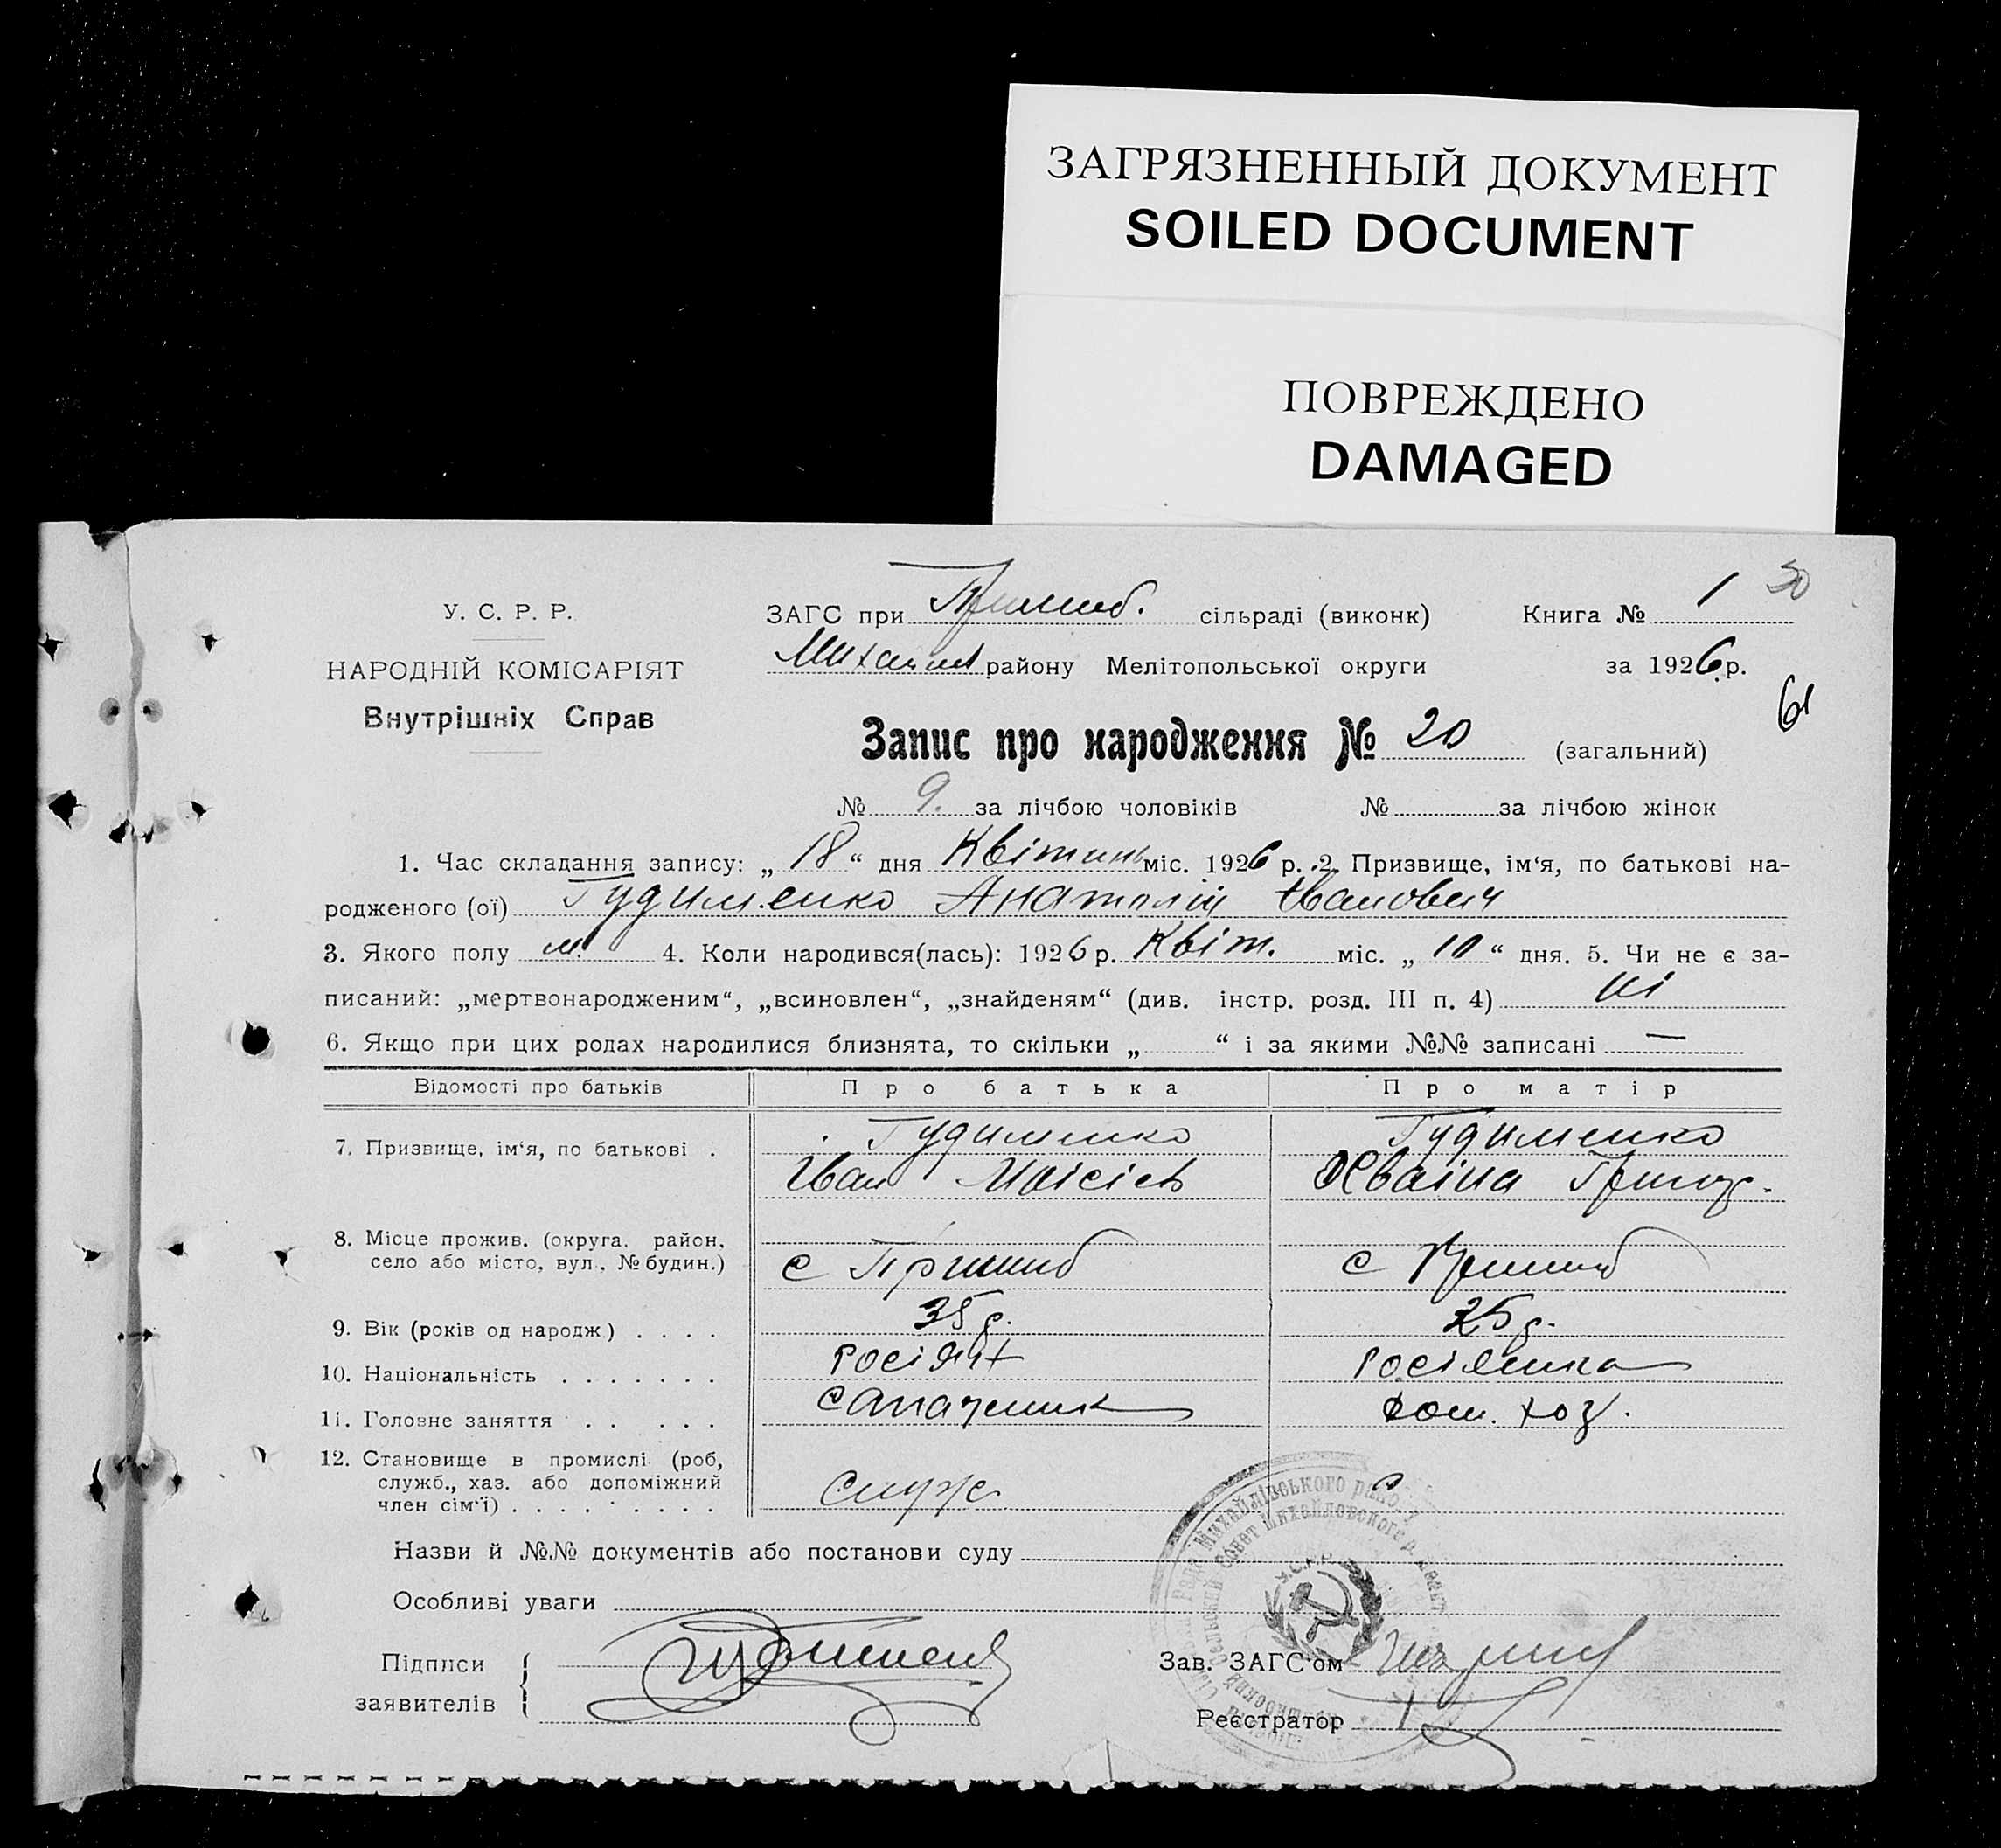 ЗАГРЯЗНЕННЫЙ ДОКУМЕНТ
SOILED DOCUMENT
ПОВРЕЖДЕНО
DAMAGED
30
У. С. Р. Р.
ЗАГС при Пришиб. сільраді (виконк) Книга № 1
НАРОДНІЙ КОМІСАРІЯТ
району Мелітопольської округи за 1926 р.
Внутрішніх Справ
61
Запис про народження № 20 (загальний)
№ 9. за лічбою чоловіків № за лічбою жінок
1. Час складання запису: „ 18 “ дня Квітень міс. 1926 р. 2. Призвище, ім‘я, по батькові на-
родженого (ої) Гудименко Анатолій Іванович
3. Якого полу м. 4. Коли народився(лась): 1926 р. Квіт. міс. „ 10 “ дня. 5. Чи не є за-
писаний: „мертвонародженим“, „всиновлен“, „знайденям“ (див. інстр. розд. III п. 4) Ні
6. Якщо при цих родах народилися близнята, то скільки „ “ і за якими №№ записані —
Відомості про батьків Про батька Про матір
7. Призвище, ім‘я, по батькові . Гудименко Гудименко
Іван Мойсієв Григор.
8. Місце прожив. (округа, район,
село або місто, вул., № будин.) с Пришиб с Пришиб
9. Вік (років од народж) . . . . 35 р. 25 р.
10. Національність . . . . . . . росіян росіянка
11. Головне заняття . . . . . дом. хоз.
12. Становище в промислі (роб,
служб., хаз. або допоміжний
член сім‘ї) . . . . . . . . . служ
Михайлівського
Михайловского
У.С.Р.Р.
Назви й №№ документів або постанови суду
Особливі уваги
Підписи
заявителів
Зав. ЗАГС‘ом
Реєстратор